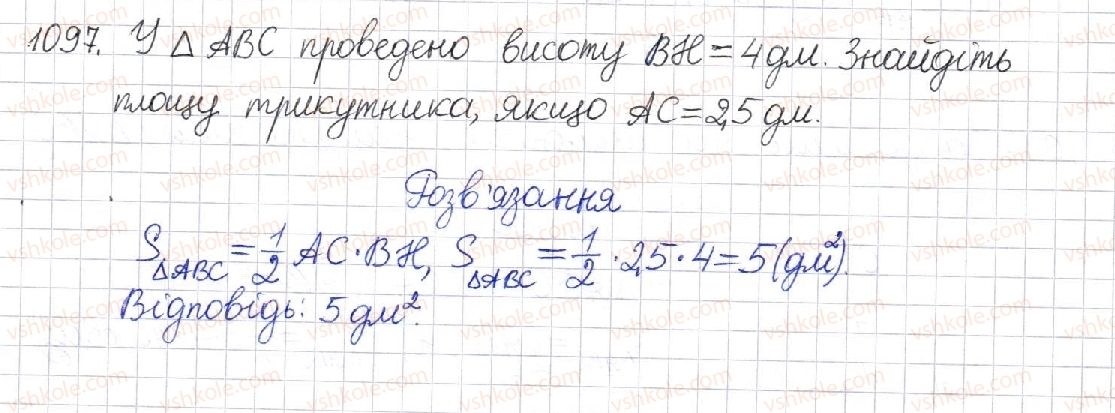 1097. У △ABC проведено висоту BH = 4 дм. Знайдіть
площу трикутника, якщо AC = 2,5 дм.
Розв'язання
S△ABC = 1/2 AC · BH, S△ABC = 1/2 · 2,5 · 4 = 5 (дм²).
Відповідь: 5 дм².